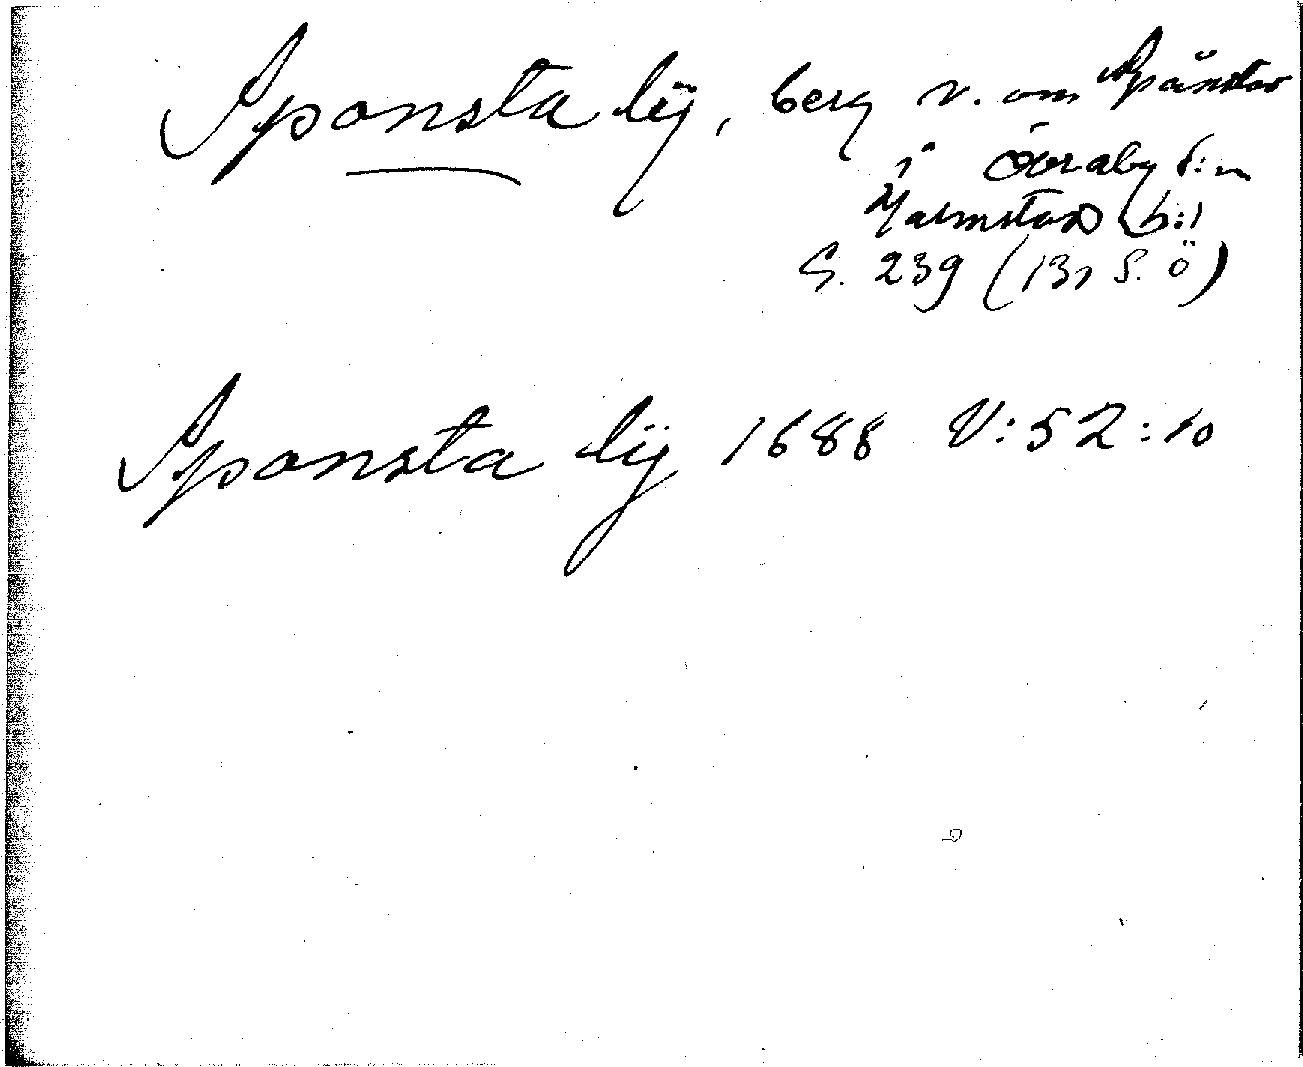 Sponsta lÿ, berg v. om Spånstad
i Övraby s:n
Halmstad h:d
S. 239 (13, S. ö)
Sponsta lÿ 1688 V:52:10